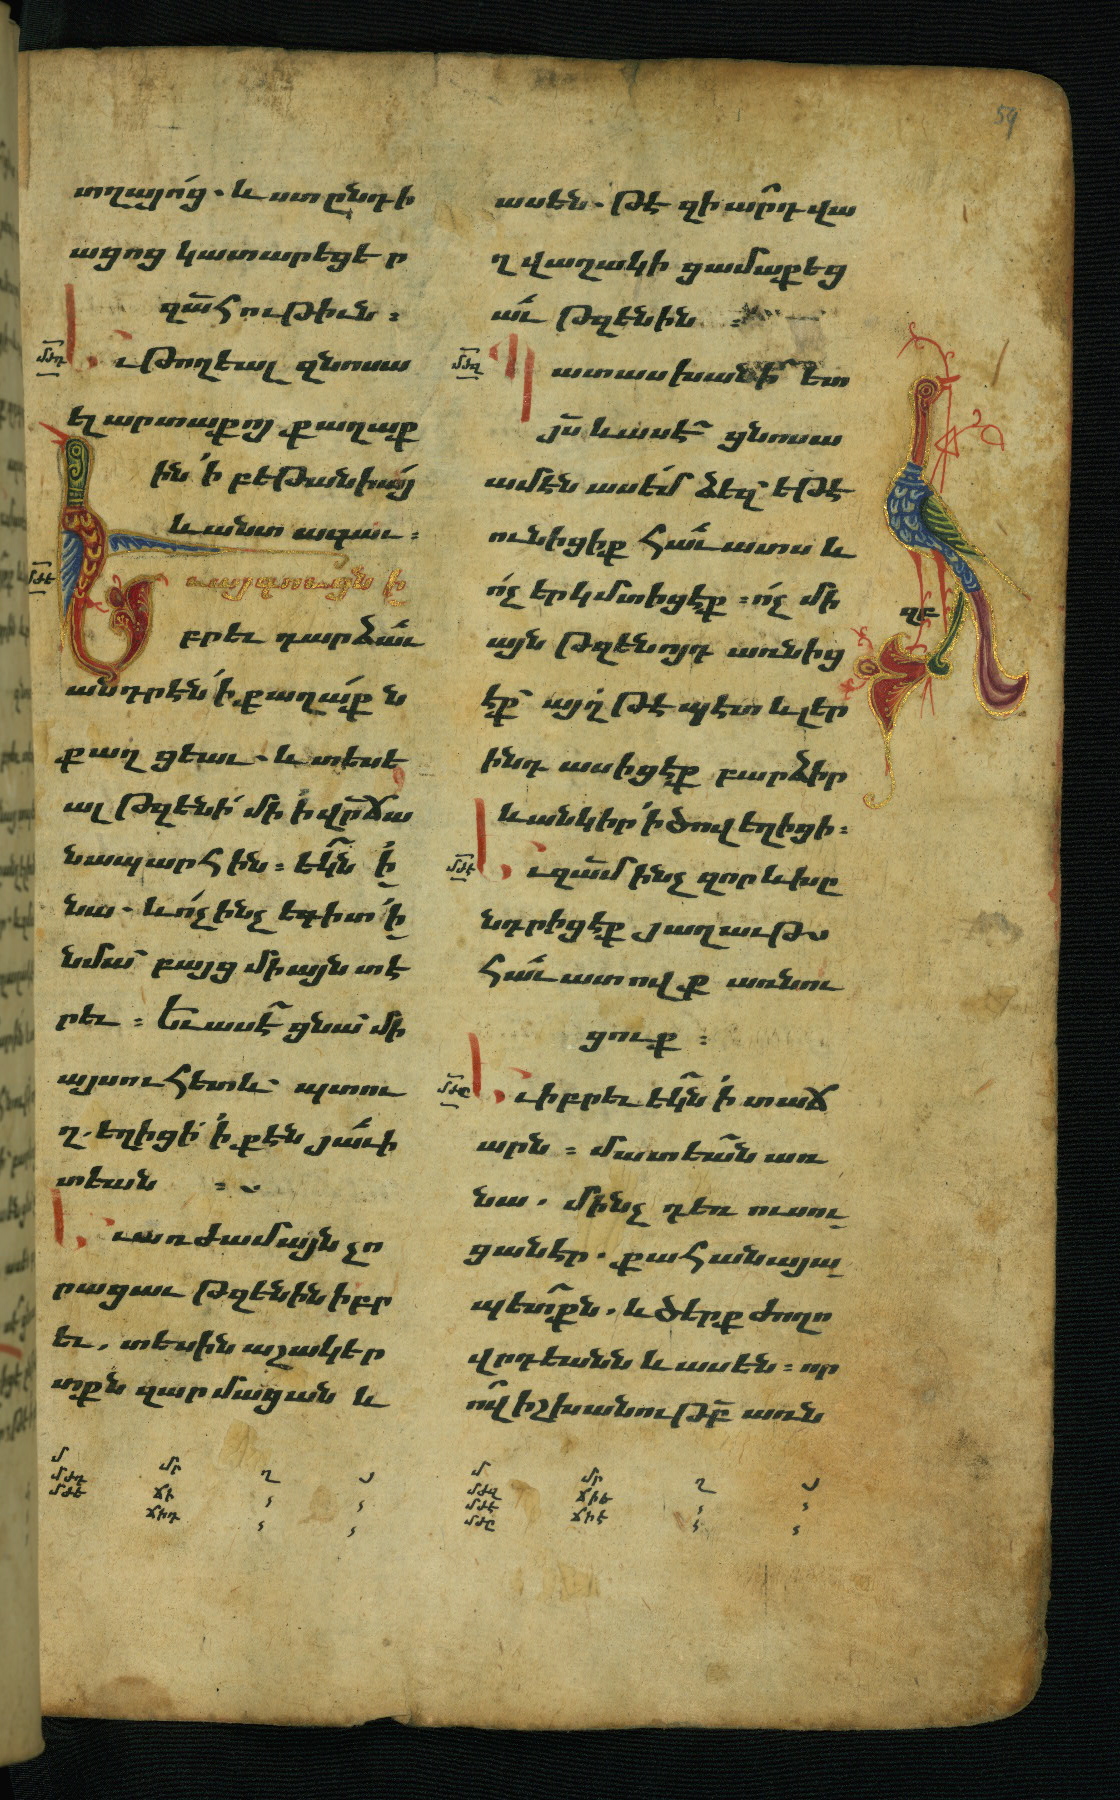 59
տղայոց. և ստընդի
ացոց կատարեցեր
զա̅հութիւն :
մժդ
Եւ թողեալ զնոսա
ել արտաքոյ քաղաք
ին ՚ի բեթանիայ
և անտ ագաւ :
մժե
Եւ այգուց̅ն ի
բրեւ դարձա̅ւ
անդրէն ՚ի քաղաքն
քաղցեաւ. և տեսե
ալ թզենի մի ՚ի վր̅ ճա
նապարհին : եկ̅ն ՚ի
նա. և ոչինչ եգիտ ՚ի
նմա̅ բայց միայն տե
րեւ : Եւ ասէ̅ ցնա̅ մի
այսուհետև պտու
ղ. եղիցի ՚ի քէն յա̅ւի
տեան :
Եւ առժամայն չո
րացաւ թզենին իբր
եւ. տեսին աշակեր
տքն զարմացան և
ասեն. թէ զիա̅րդ վա
ղվաղակի ցամաքեց
ա̅ւ թզենին :
մժզ
Պատասխանի̅ ետ
յս̅ և ասէ̅ ցնոսա
ամէն ասեմ ձեզ̅ եթէ
ունիցիք հա̅ւատս և
ոչ երկմտիցէք : ոչ մի
այն թզենոյդ առնից
էք̅ այղ̅ թէ պէտ և լեր
ինդ ասիցէք բարձիր
և անկիր ՚ի ծով եղիցի :
մժէ
Եւ զա̅մ ինչ զոր և խը
նդրիցէք յաղաւթս
հա̅ւատովք առնու
ցուք :
մժը
Եւ իբրեւ եկ̅ն ՚ի տաճ
արն : մատեա̅ն առ
նա. մինչ դեռ ուսու
ցանէր. քահանայա
պետ̅քն. և ծերք ժողո
վրդեանն և ասեն : որ
ով̅ իշխանութբ̅ առն
զբ
մ մր ղ յ
մժդ ճի
մժե ճիդ
մ մր ղ յ
մժզ ճիե
մժէ ճիէ
մժը